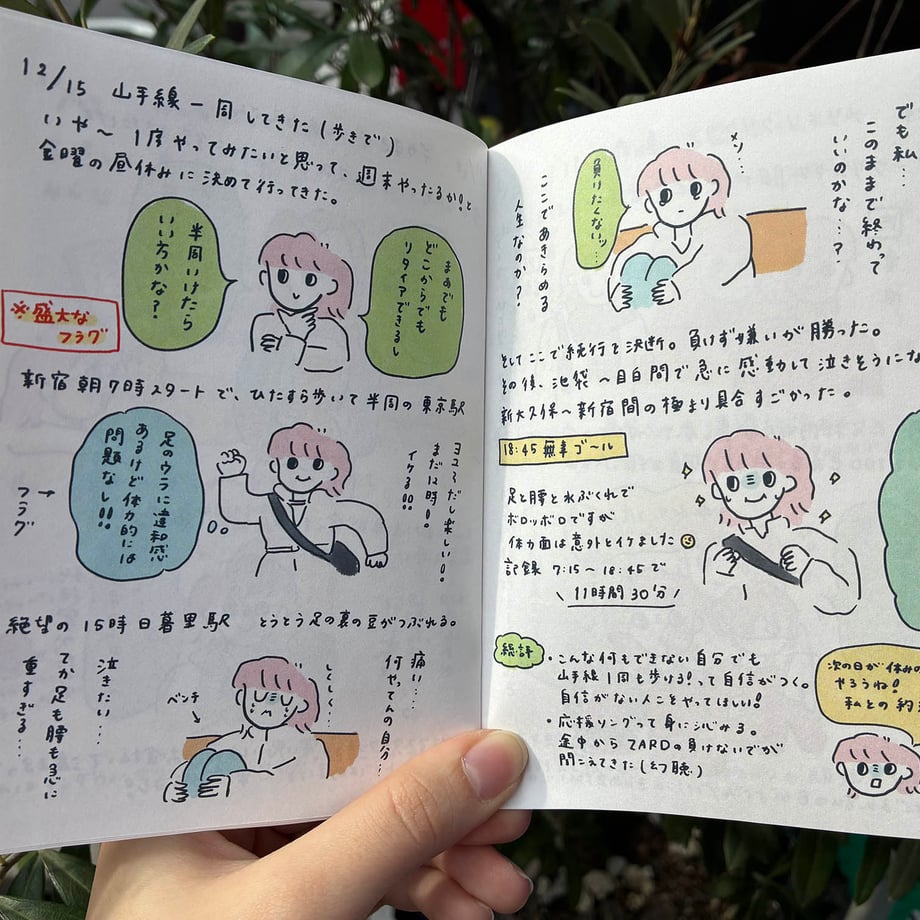 12/15 山手線一周してきた(歩きで)
いや〜1度やってみたいと思って、週末やったるか!と
金曜の昼休みに決めて行ってきた。
まぁでも
どこからでも
リタイアできるし
半周いけたら
いい方かな?
※盛大な
フラグ
新宿朝7時スタートで、ひたすら歩いて半周の東京駅
ヨユーだし楽しい!!
まだ12時!!
イケる!!
足のウラに違和感
あるけど体力的には
問題なし!!!
→
フラグ
絶望の15時日暮里駅 とうとう足の裏の豆がつぶれる。
痛い…
何やってんの自分…
しくしく…
ベンチ
泣きたい…
てか足も腰も急に
重すぎる…
でも私…
このままで終わって
いいのかな…?
メソ…
負けたくないッ…
ここであきらめる
人生なのか?
そしてここで続行を決断。負けず嫌いが勝った。
その後、池袋〜目白間で急に感動して泣きそうにな
新大久保〜新宿間の極まり具合すごかった。
18:45 無事ゴール
足と腰と水ぶくれで
ボロッボロですが
体力面は意外とイケました
記録 7:15〜18:45で
\11時間30分/
総評
・こんな何もできない自分でも
山手線1周も歩ける!って自信がつく。
自信がない人こそやってほしい!
・応援ソングって身に沁みる。
途中からZARDの負けないでが
聞こえてきた(幻聴)
次の日が休みの
やろうね!
私との約